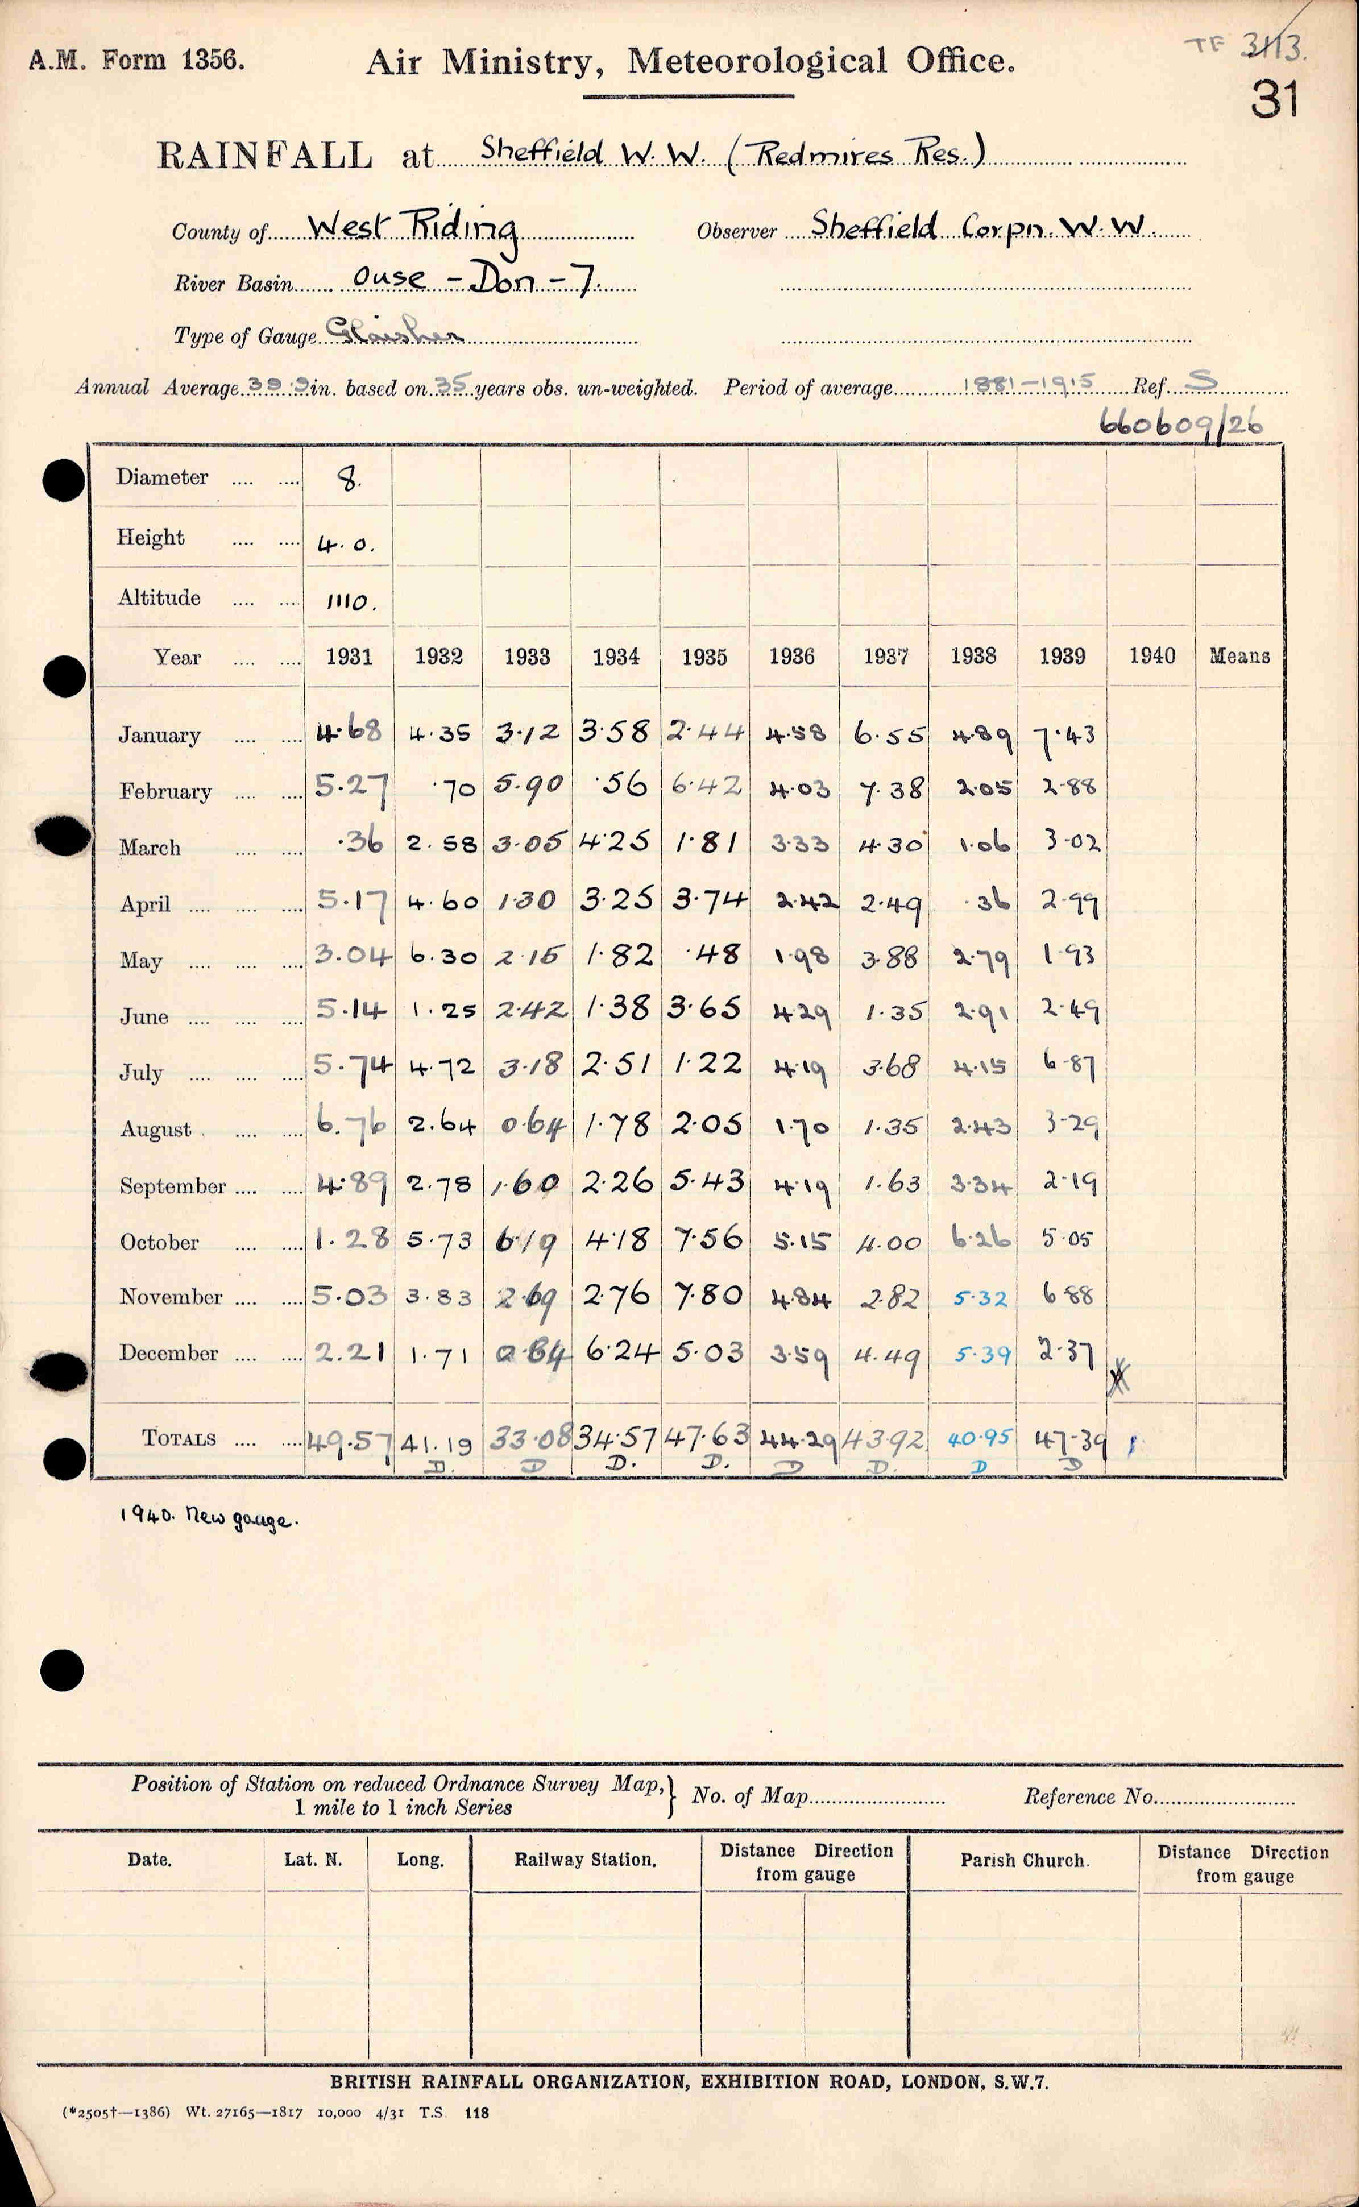 A.M. Form 1356.
Air Ministry, Meteorological Office.
TF 3113.
31
RAINFALL at Sheffield W.W. (Redmires Res.)
County of West Riding Observer Sheffield Corpn. W.W.
River Basin Ouse - Don - 7.
Type of Gauge Glaisher
Annual Average 39.9 in. based on 35 years obs. un-weighted. Period of average 1881-1915 Ref. S
660609/26
Diameter 8.
Height 4.0.
Altitude 1110.
Year 1931 1932 1933 1934 1935 1936 1937 1938 1939 1940 Means
January 4.68 4.35 3.12 3.58 2.44 4.58 6.55 4.89 7.43
February 5.27 .70 5.90 .56 6.42 4.03 7.38 2.05 2.88
March .36 2.58 3.05 4.25 1.81 3.33 4.30 1.06 3.02
April 5.17 4.60 1.30 3.25 3.74 2.42 2.49 .36 2.99
May 3.04 6.30 2.15 1.82 .48 1.98 3.88 2.79 1.93
June 5.14 1.25 2.42 1.38 3.65 4.29 1.35 2.91 2.49
July 5.74 4.72 3.18 2.51 1.22 4.19 3.68 4.15 6.87
August 6.76 2.64 0.64 1.78 2.05 1.70 1.35 2.43 3.29
September 4.89 2.78 1.60 2.26 5.43 4.19 1.63 3.34 2.19
October 1.28 5.73 6.19 4.18 7.56 5.15 4.00 6.26 5.05
November 5.03 3.83 2.69 2.76 7.80 4.84 2.82 5.32 6.88
December 2.21 1.71 0.84 6.24 5.03 3.59 4.49 5.39 2.37
TOTALS 49.57 41.19 33.08 34.57 47.63 44.29 43.92 40.95 47.39
D. D D. D. D D. D D
1940. New gauge.
Position of Station on reduced Ordnance Survey Map, } No. of Map Reference No.
1 mile to 1 inch Series
Date. Lat. N. Long. Railway Station. Distance Direction from gauge Parish Church. Distance Direction from gauge
BRITISH RAINFALL ORGANIZATION, EXHIBITION ROAD, LONDON, S.W.7.
(*2505†—1386) Wt. 27165—1817 10,000 4/31 T.S. 118